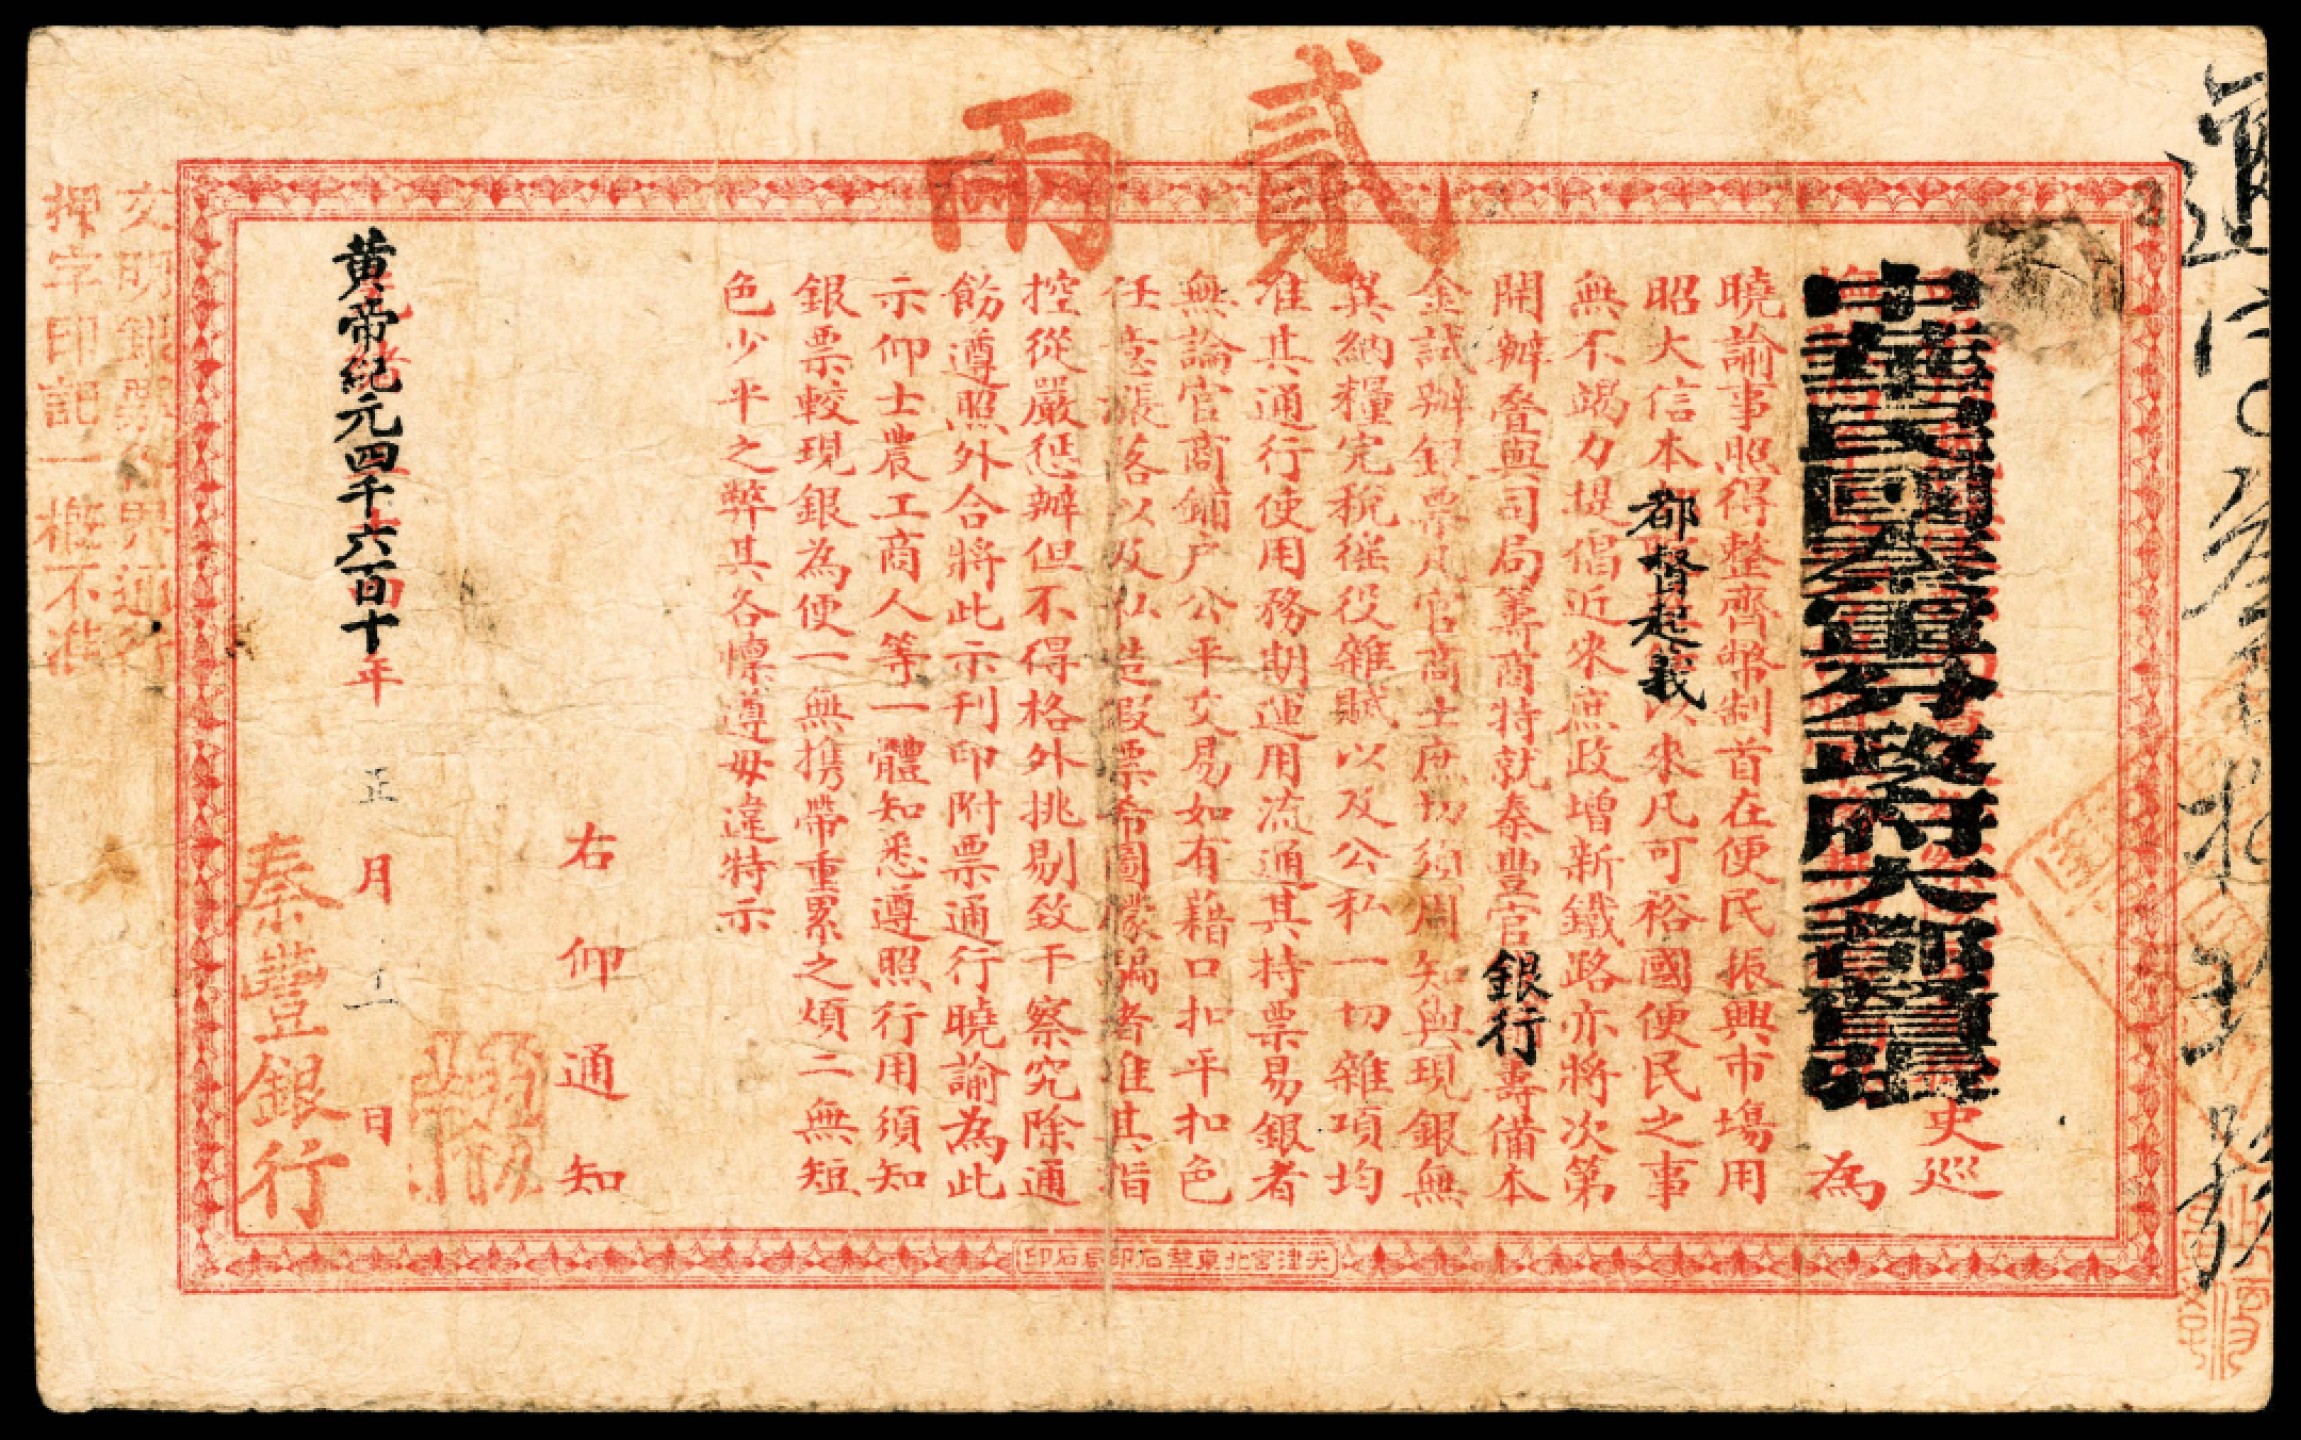 貳兩
中華民國秦軍分政府大都督張
史巡
為
曉諭事照得整齊幣制首在便民振興市場用
昭大信本都督起義以來凡可裕國便民之事
無不竭力提倡近來庶政增新鐵路亦將次第
開辦叠與司局籌商特就秦豐官銀行籌備本
金試辦銀票凡官商士庶切須周知與現銀無
異納糧完稅徭役雜賦以及公私一切雜項均
准其通行使用務期運用流通其持票易銀者
無論官商鋪户公平交易如有藉口扣平扣色
任意漲落以及私造假票希圖朦騙者准其指
控從嚴懲辦但不得格外挑剔致干察究除通
飭遵照外合將此示刊印附票通行曉諭為此
示仰士農工商人等一體知悉遵照行用須知
銀票較現銀為便一無携帶重累之煩二無短
色少平之弊其各懍遵毋違特示
右仰通知
黄帝紀元四千六百十年正月 日
秦豐銀行
交明銀票
押字印記一概不准
天津宮北東華石印局石印
通字